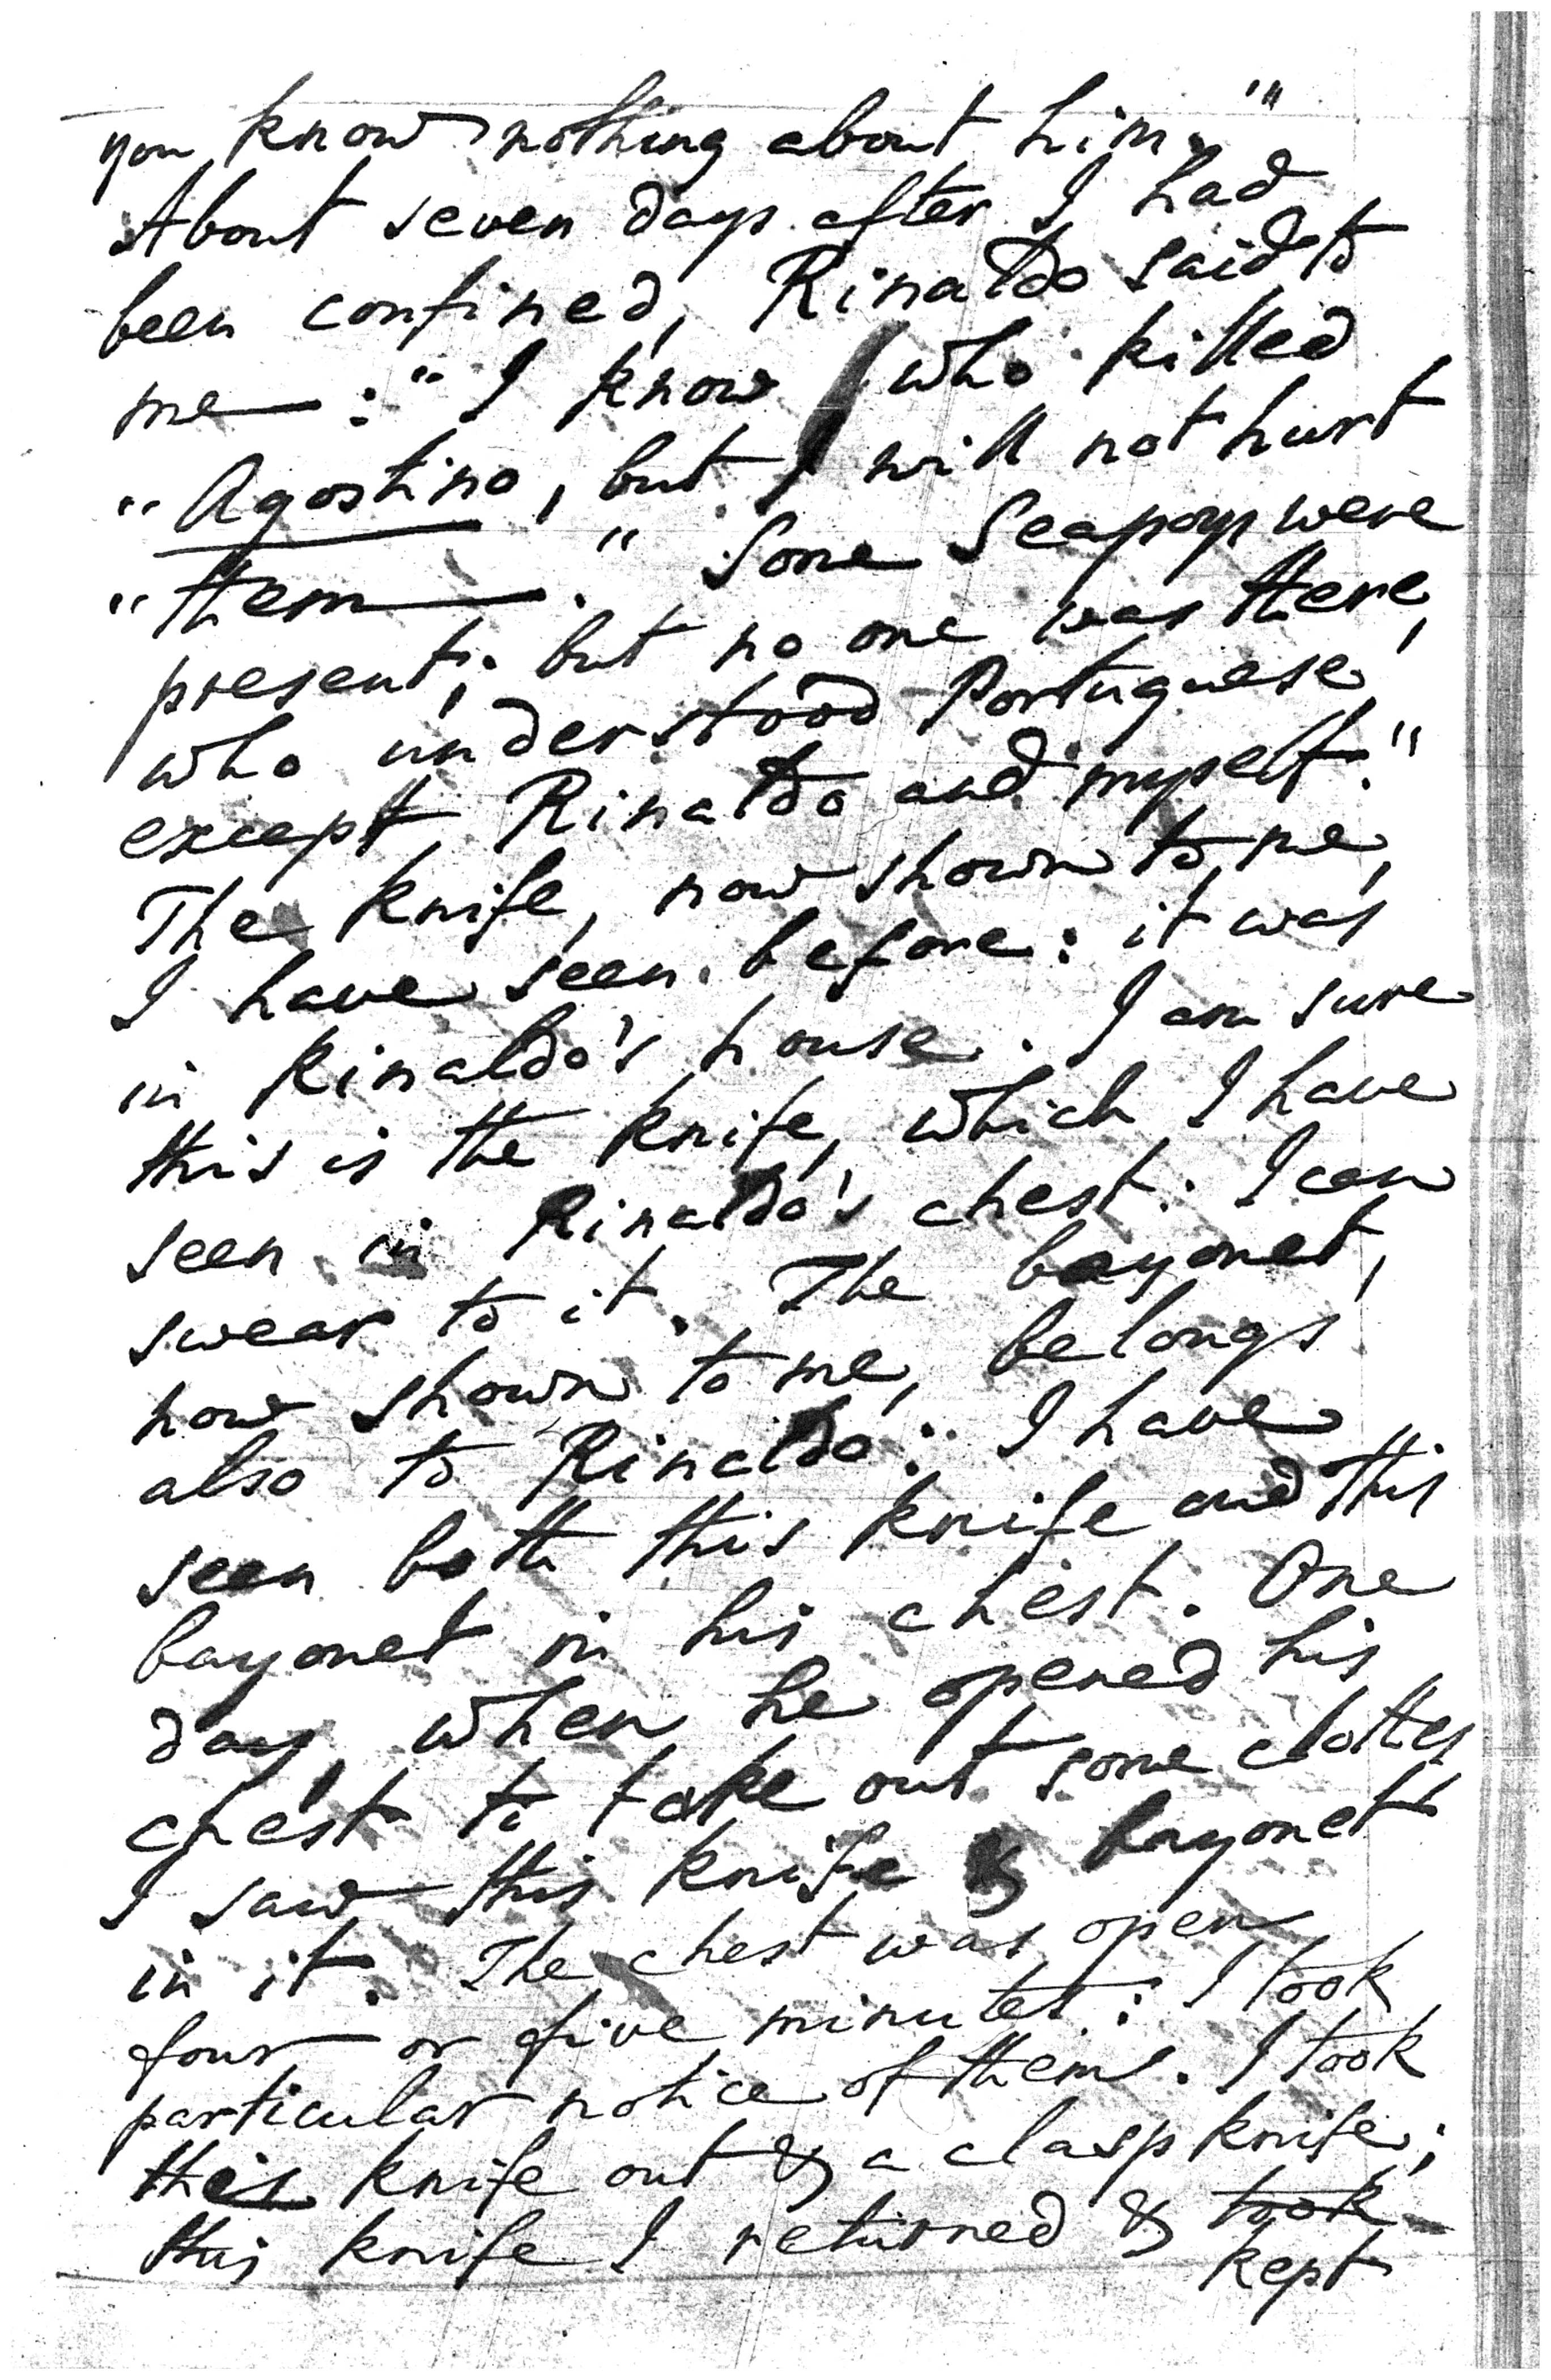 you know nothing about him."'"
About seven days after I had
been confined, Rinaldo said to
me : "I know who killed
"Agostino, but I will not hurt
"them ." Some Seapoys were
present; but no one was there,
who understood Portuguese
except Rinaldo and myself."
The knife, now shown to me,
I have seen before: it was
in Rinaldo's house. I am sure
this is the knife, which I have
seen in Rinaldo's chest. I can
swear to it. The bayonet,
now shown to me, belongs
also to Rinaldo: I have
seen both this knife and this
bayonet in his chest. One
day, when he opened his
chest to take out some clothes
I saw this knife & bayonet
in it. The chest was open
four or five minutes: I took
particular notice of them. I took
this knife out & a clasp knife;
this knife I returned & took
kept